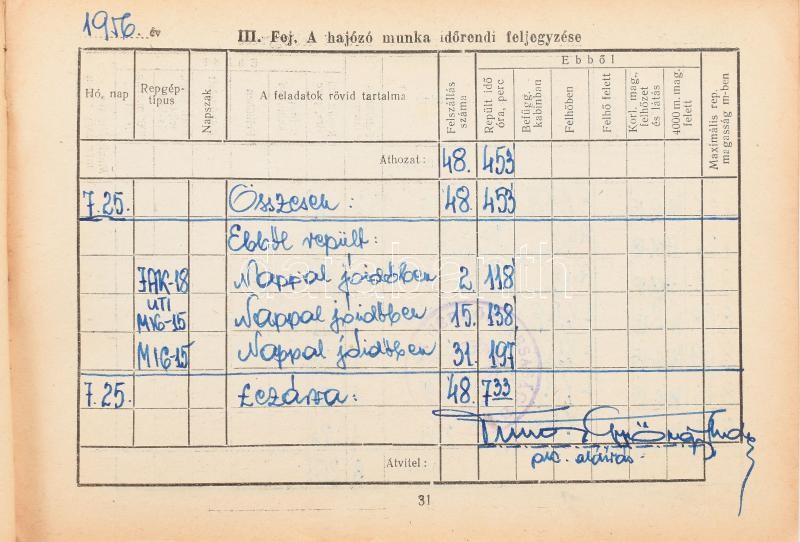 1956. év
III. Fej. A hajózó munka időrendi feljegyzése
Hó, nap
Repgép-
típus
Napszak
A feladatok rövid tartalma
Felszállás
száma
Repült idő
óra, perc
Ebből
Befügg.
kabinban
Felhőben
Felhő felett
Korl. mag.,
felhőzet
és látás
4000 m. mag.
felett
Maximális rep.
magasság m-ben
Áthozat: 48. 453
7.25. Összesen: 48. 453
Ebből repült:
JAK-18 Nappal jóidőben 2. 118
UTI
MIG-15 Nappal jóidőben 15. 138
MIG-15 Nappal jóidőben 31. 197
7.25. Lezárva: 48. 733
pk. aláírás
Átvitel:
31